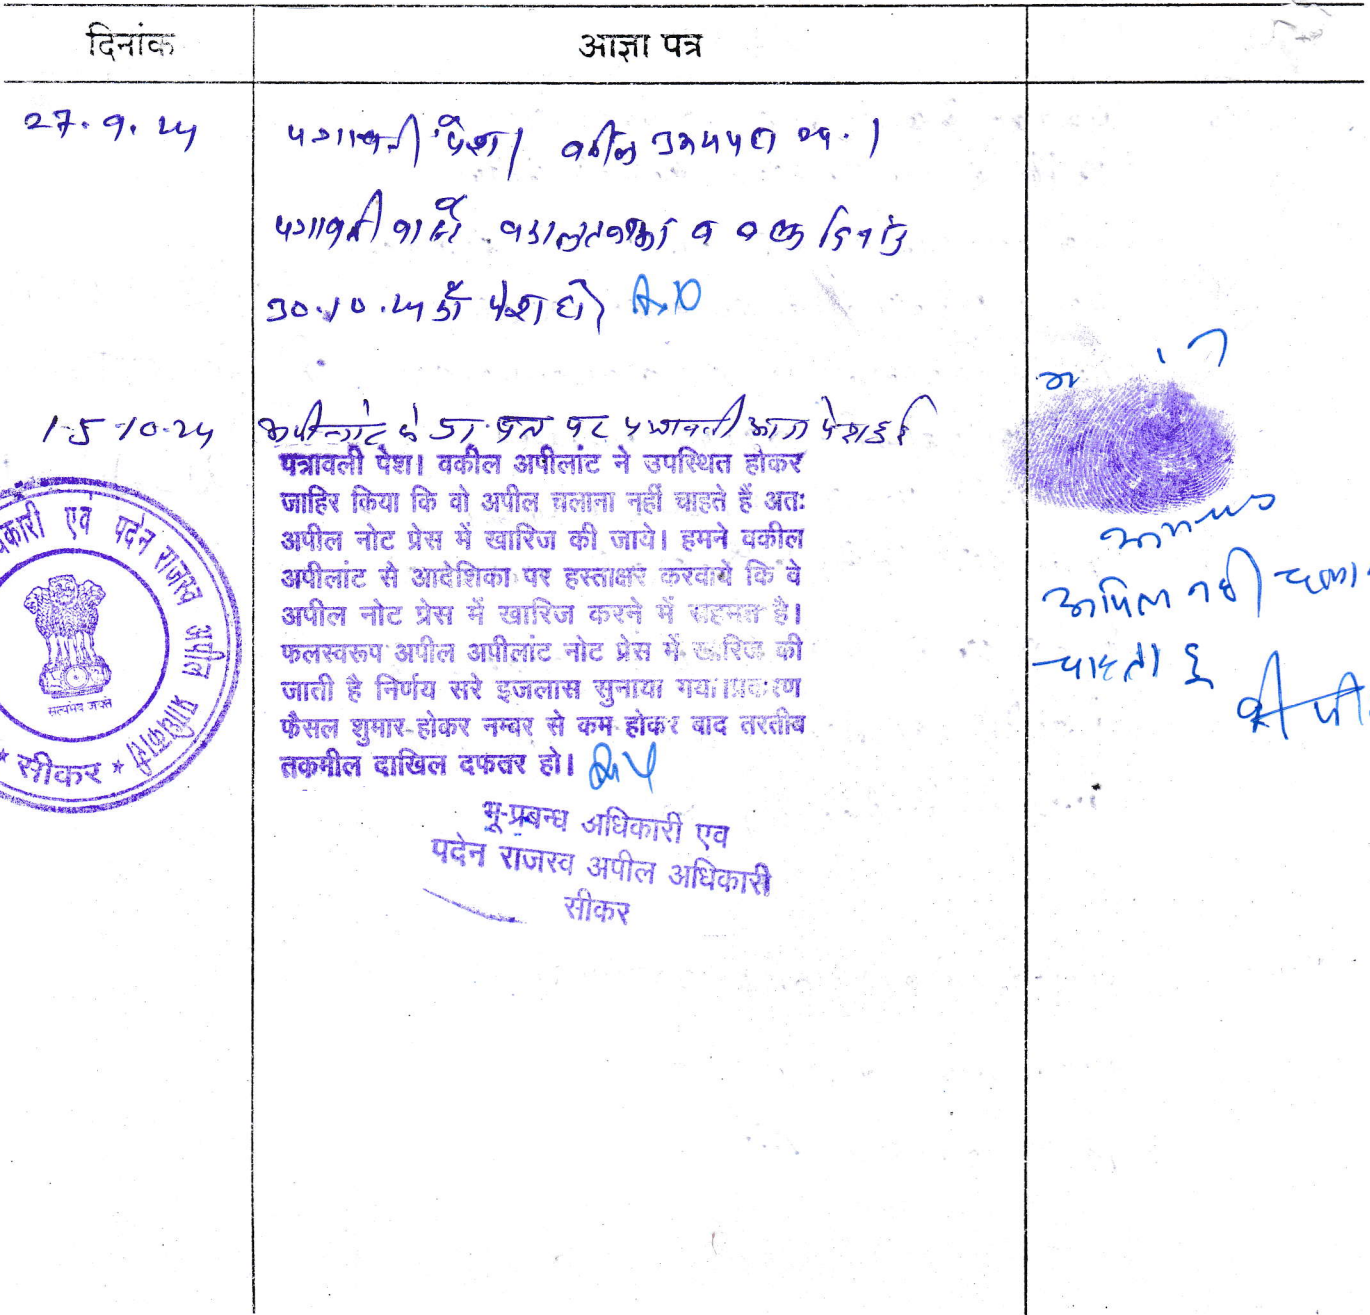 दिनांक
आज्ञा पत्र
27.9.24
पत्रावली पेश। वकील उभयपक्ष उप.।
पत्रावली वास्ते व दिनांक
30.10.24 को पेश हो।
15-10-24
अपीलांट के प्रा. पत्र पर पत्रावली आज पेश हुई
पत्रावली पेश। वकील अपीलांट ने उपस्थित होकर
जाहिर किया कि वो अपील चलाना नहीं चाहते हैं अतः
अपील नोट प्रेस में खारिज की जाये। हमने वकील
अपीलांट से आदेशिका पर हस्ताक्षर करवाये कि वे
अपील नोट प्रेस में खारिज करने में सहमत है।
फलस्वरूप अपील अपीलांट नोट प्रेस में खारिज की
जाती है निर्णय सरे इजलास सुनाया गया।प्रकरण
फैसल शुमार होकर नम्बर से कम होकर बाद तरतीव
तकमील दाखिल दफतर हो।
भू-प्रबन्ध अधिकारी एव
पदेन राजस्व अपील अधिकारी
सीकर
कारी एवं पदेन राजस्व अपील प्राधिकारी
सत्यमेव जयते
* सीकर *
अपिल नही
चाहता हू